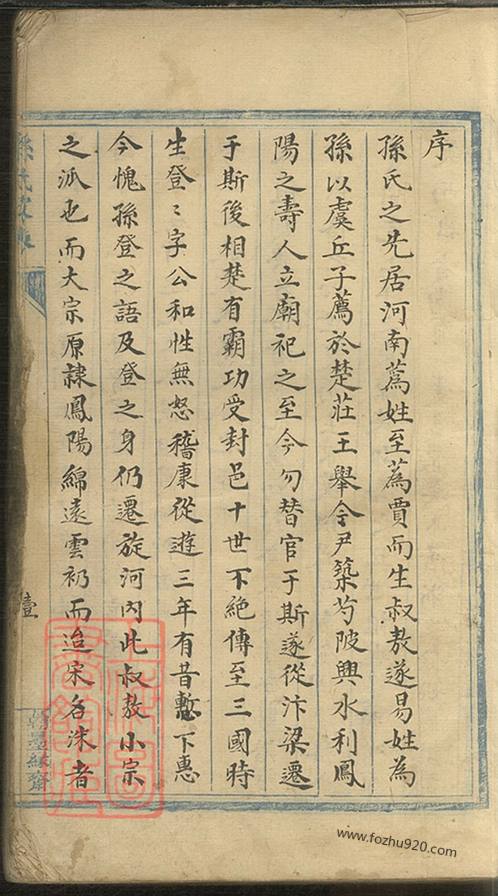 序
孫氏之先居河南蔿姓至蔿賈而生叔敖遂易姓為
孫以虞丘子薦於楚莊王舉令尹築芍陂興水利鳳
陽之壽人立廟祀之至今勿替官于斯遂從汴梁遷
于斯後相楚有霸功受封邑十世不絕傳至三國時
生登〻字公和性無怒嵇康從遊三年有昔慙下惠
今愧孫登之語及登之身仍遷旋河內此叔敖小宗
之派也而大宗原隷鳳陽綿遠雲礽而迨宋名洙者
孫氏家
壹
翰墨緣齋
www.fozhu920.com